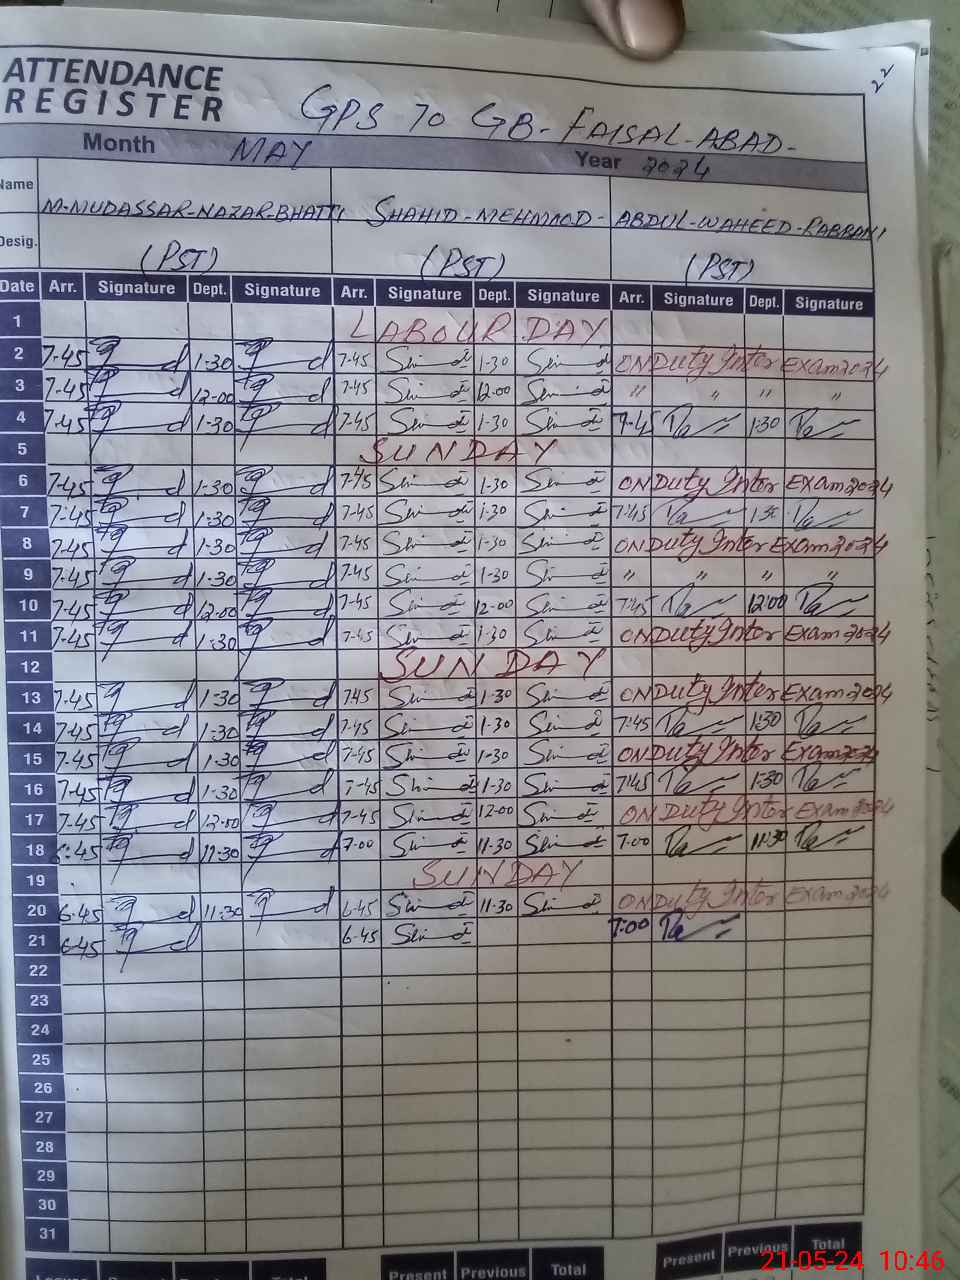 22
ATTENDANCE
REGISTER
GPS 70 GB - FAISAL-ABAD-
Month MAY Year 2024
Name M-MUDASSAR-NAZAR-BHATTI SHAHID-MEHMOOD- ABDUL-WAHEED-RABBANI
Desig. (PST) (PST) (PST)
Date Arr. Signature Dept. Signature Arr. Signature Dept. Signature Arr. Signature Dept. Signature
1 LABOUR DAY
2 7-45 1-30 7-45 1-30 ON Duty Inter Exam 2024
3 7-45 12-00 7-45 12-00 " " " "
4 7-45 1-30 7-45 1-30 7-45 1:30
5 SUNDAY
6 7-45 1-30 7-45 1-30 ON Duty Inter Exam 2024
7 7-45 1-30 7-45 1-30 7:45 1:30
8 7-45 1-30 7-45 1-30 ON Duty Inter Exam 2024
9 7-45 1-30 7-45 1-30 " " " "
10 7-45 12-00 7-45 12-00 7:45 12:00
11 7-45 1-30 7-45 1-30 ON Duty Inter Exam 2024
12 SUNDAY
13 7-45 1-30 7-45 1-30 ON Duty Inter Exam 2024
14 7-45 1-30 7-45 1-30 7:45 1:30
15 7-45 1-30 7-45 1-30 ON Duty Inter Exam 2024
16 7-45 1-30 7-45 1-30 7:45 1:30
17 7-45 12-00 7-45 12-00 ON Duty Inter Exam 2024
18 6:45 11-30 7-00 11-30 7:00 11:30
19 SUNDAY
20 6-45 11-30 6-45 11-30 ON Duty Inter Exam 2024
21 6-45 6-45 7:00
22
23
24
25
26
27
28
29
30
31
Present Previous Total
Present Previous Total
21-05-24 10:46